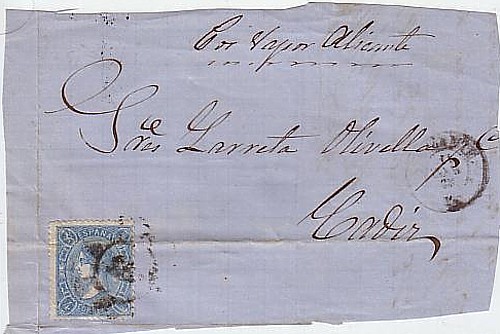 Por Vapor Alicante
Sres Larreta Olivella y Ca
Cadiz
ESPAÑA